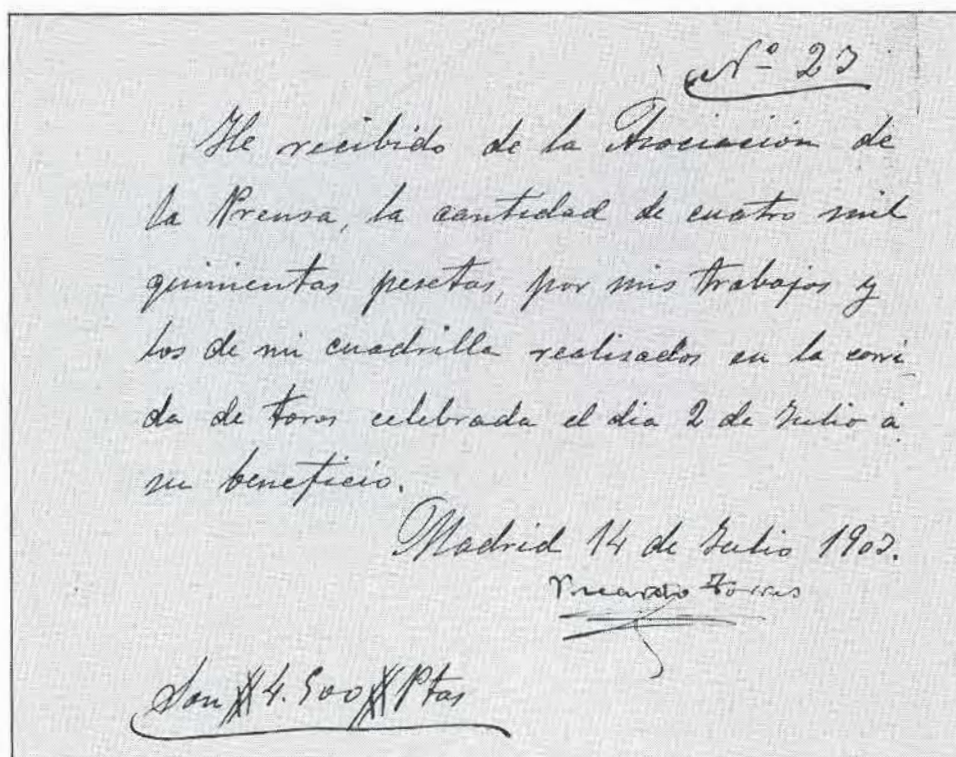 Nº 23
He recibido de la Asociación de
la Prensa, la cantidad de cuatro mil
quinientas pesetas, por mis trabajos y
los de mi cuadrilla realisados en la corri
da de toros celebrada el dia 2 de Julio á
su beneficio.
Madrid 14 de Julio 1903.
Ricardo Torres
Son # 4.500 # Ptas